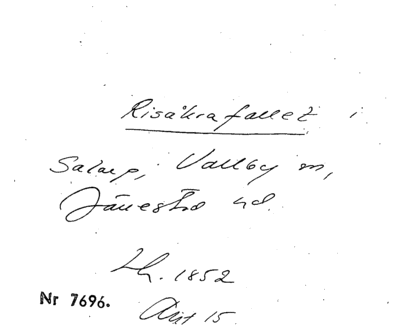 Risåkrafallet i
Salarp, Vallby sn,
Järrestad hd.
Lh. 1852
Nr 7696.
15